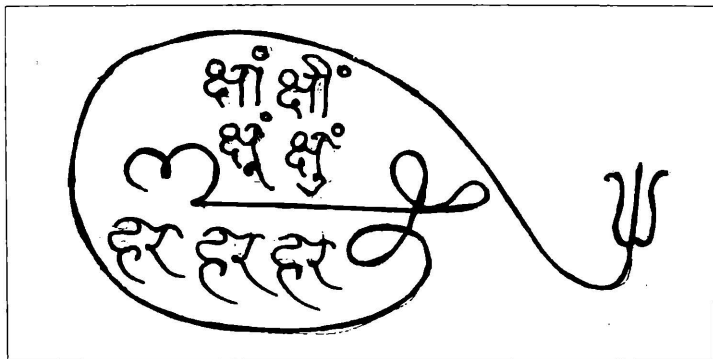 क्षां क्षौं
क्षूं क्षुं
हर हर हर